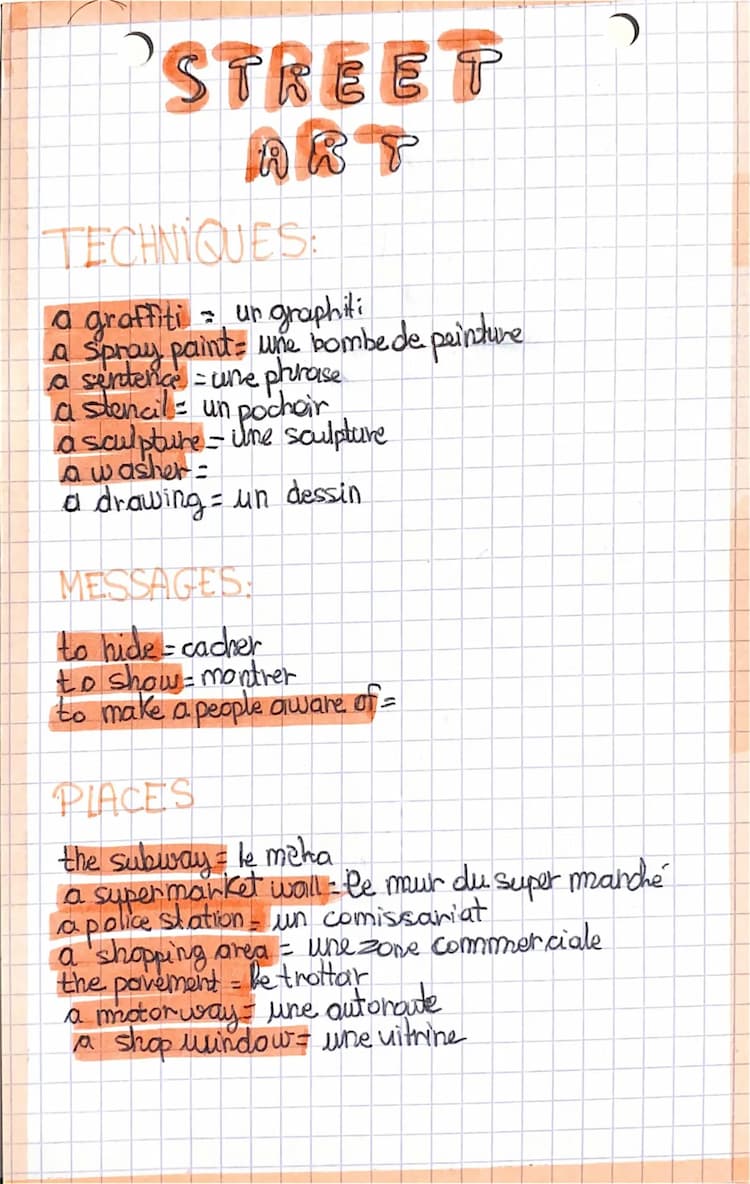 STREET
ART
TECHNIQUES:
a graffiti = un graphiti
a spray paint = une bombe de peinture
a sentence = une phrase
a stencil = un pochoir
a sculpture = une sculpture
a washer =
a drawing = un dessin
MESSAGES:
to hide = cacher
to show = montrer
to make a people aware of =
PLACES
the subway = le métro
a supermarket wall = le mur du super marché
a police station = un comissariat
a shopping area = une zone commerciale
the pavement = le trottar
a motorway = une autoroute
a shop window = une vitrine